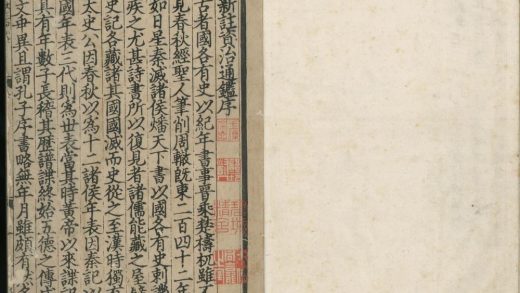 新註資治通鑑序
古者國各有史以紀年書事晉乘楚檮杌雖不
見春秋經聖人筆削周轍旣東二百四十二年
如日星秦滅諸侯燔天下書以國各有史刺譏
疾之尤甚詩書所以復見者諸儒能藏之屋壁
史記各藏諸其國國滅而史從之至漢時獨有
太史公因春秋以爲十二諸侯年表因秦記以
國年表三代則爲世表當其時黃帝以來諜記
具有年數子長稽其歷譜諜終始五德之傳
文乖異且謂孔子序書略無年月雖頗有然多